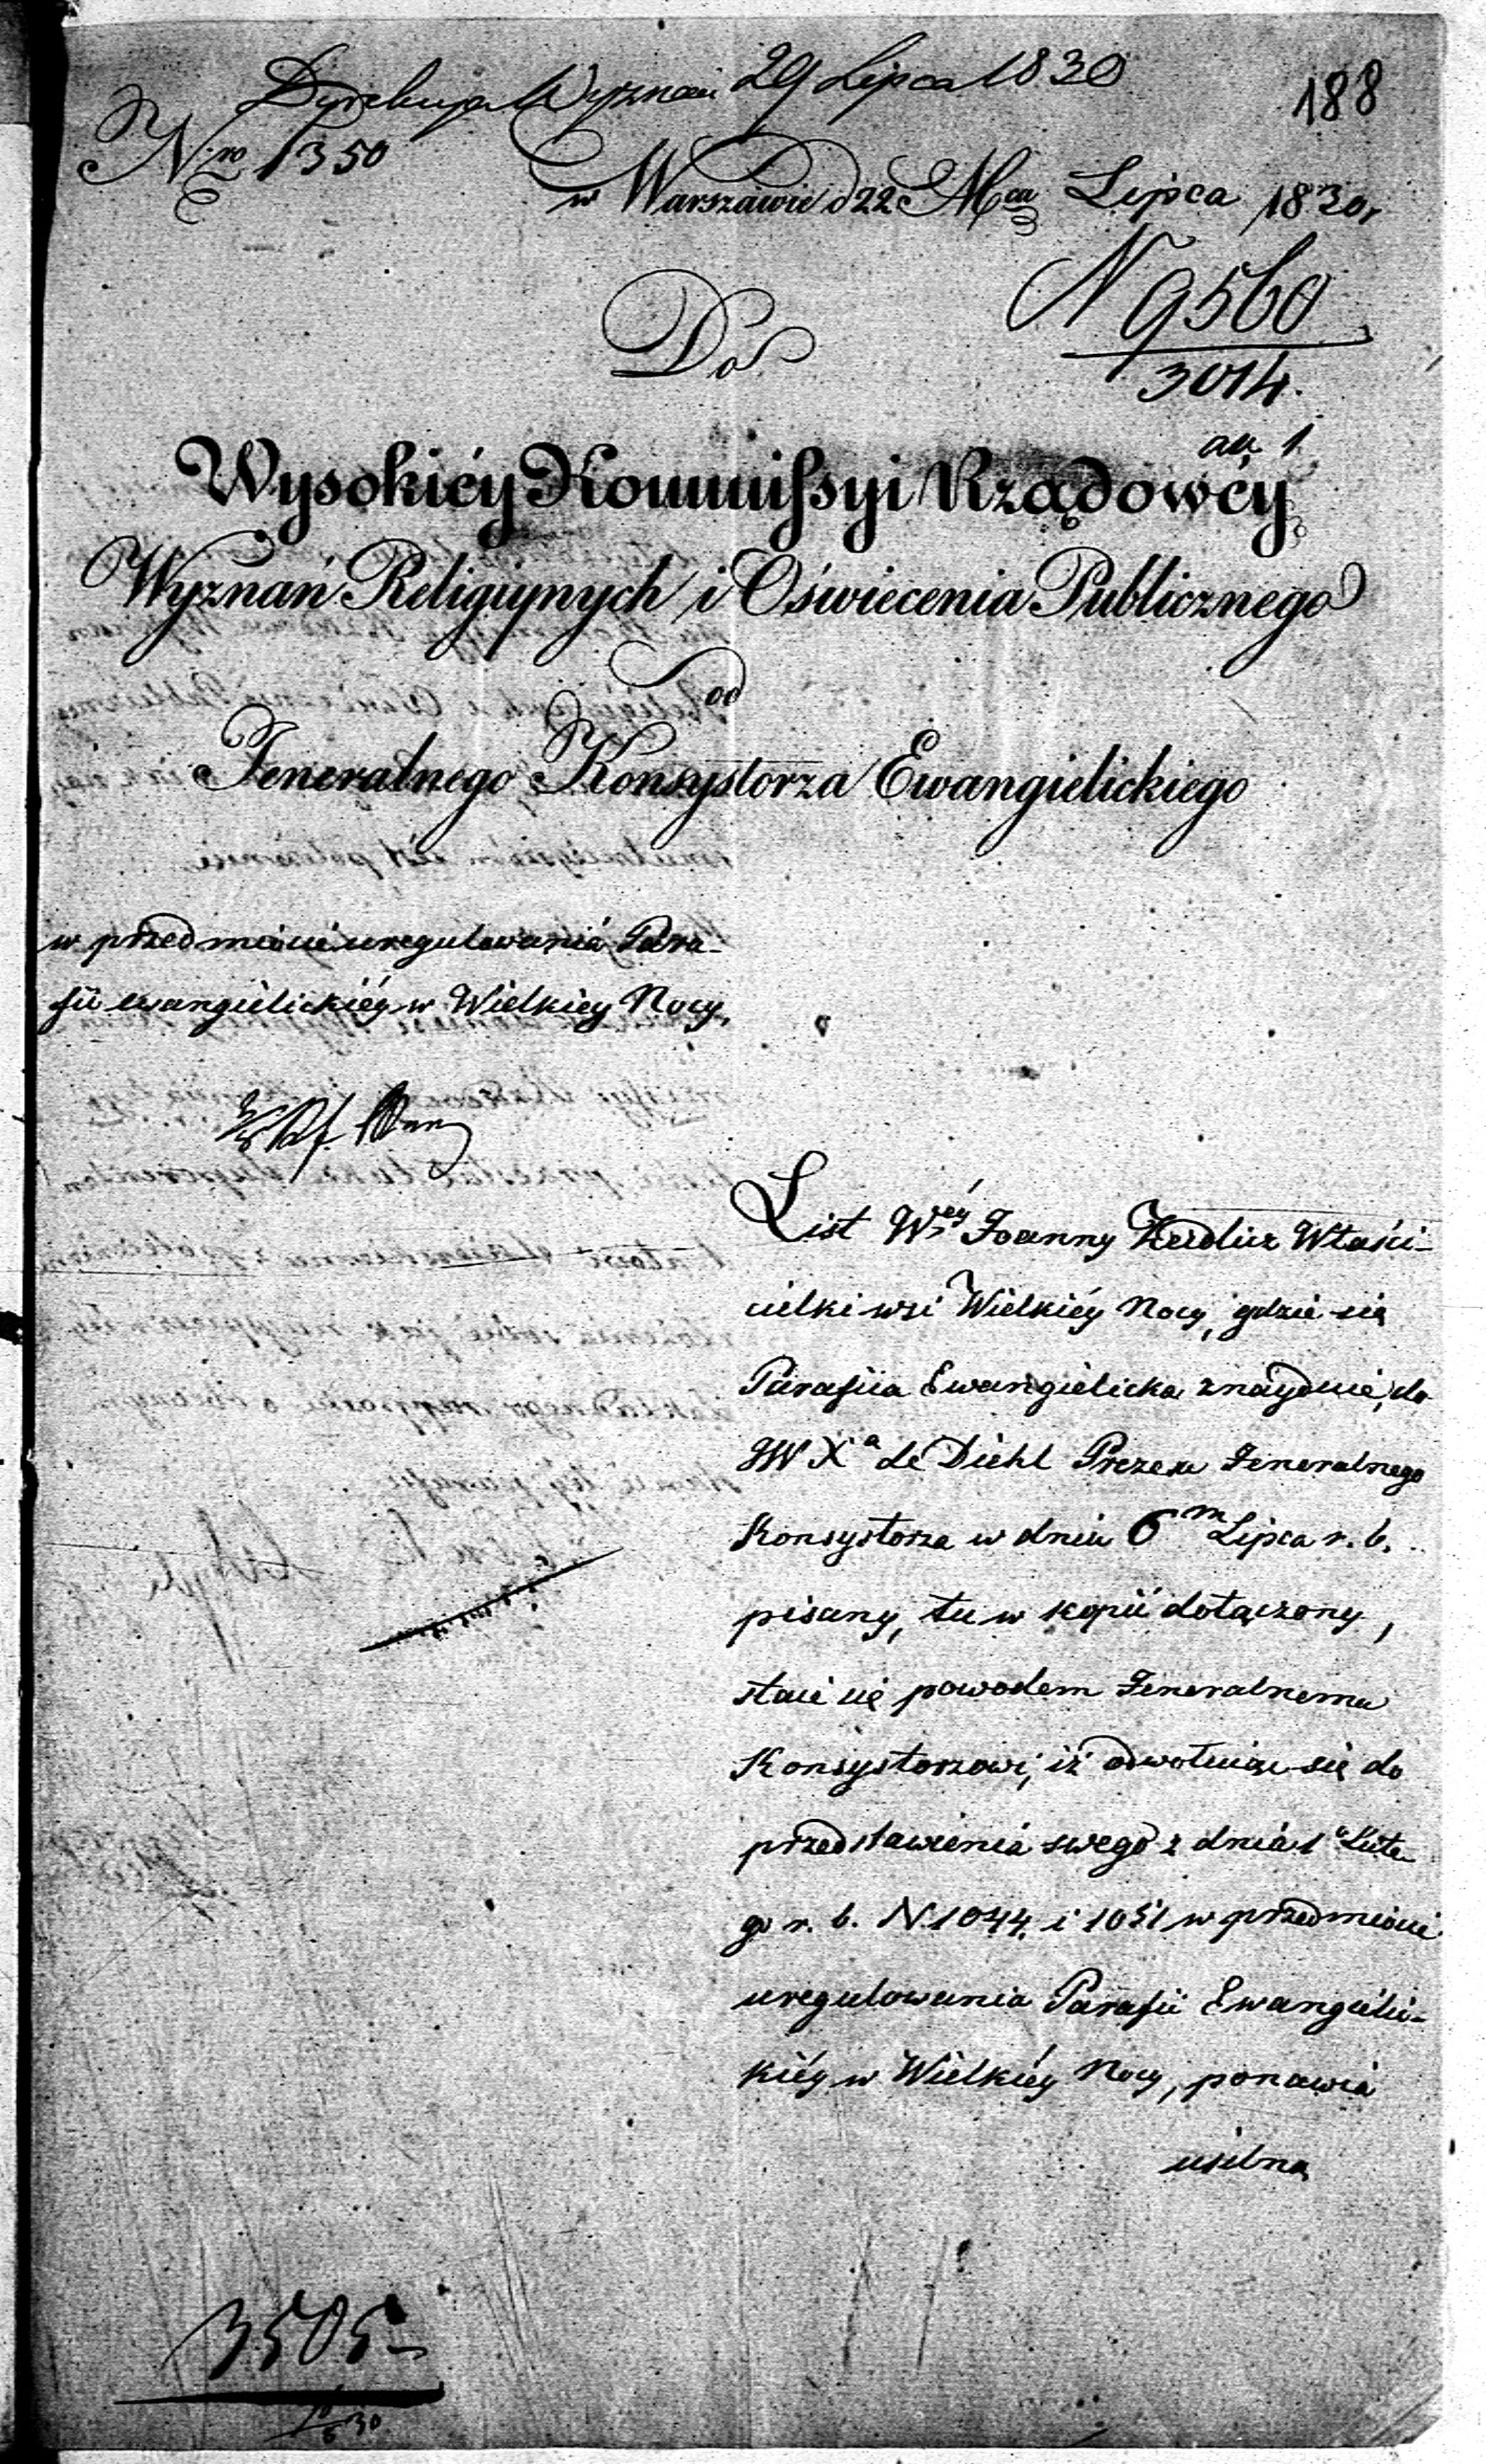 Dyrekcya Wyznań 29 Lipca 1830
188
Nro 1350
w Warszawie d 22 Mca Lipca 1830 r
N 9560
3014.
Do
ad 1
Wysokiéy Kommissyi Rządowéy
Wyznań Religiynych i Oświecenia Publicznego
od
Jeneralnego Konsystorza Ewangielickiego
w przedmiocie uregulowania Para-
fii ewangielickiéy w Wielkiey Nocy.
List Wéy Joanny Właści-
cielki wsi Wielkiéy Nocy, gdzie się
Parafiia Ewangielicka znayduie, do
JW Xa de Diehl Prezesa Jeneralnego
Konsystorza w dniu 6m Lipca r. b.
pisany, tu w kopii dołączony,
staie się powodem Jeneralnemu
Konsystorzowi, iż odwołuiąc się do
przedstawienia swego z dnia 1o Lute-
go r. b. N 1044. i 1051 w przedmiocie
uregulowania Parafii Ewangieli-
kiéy w Wielkiéy Nocy, ponawia
usilną
3505
10/8 30